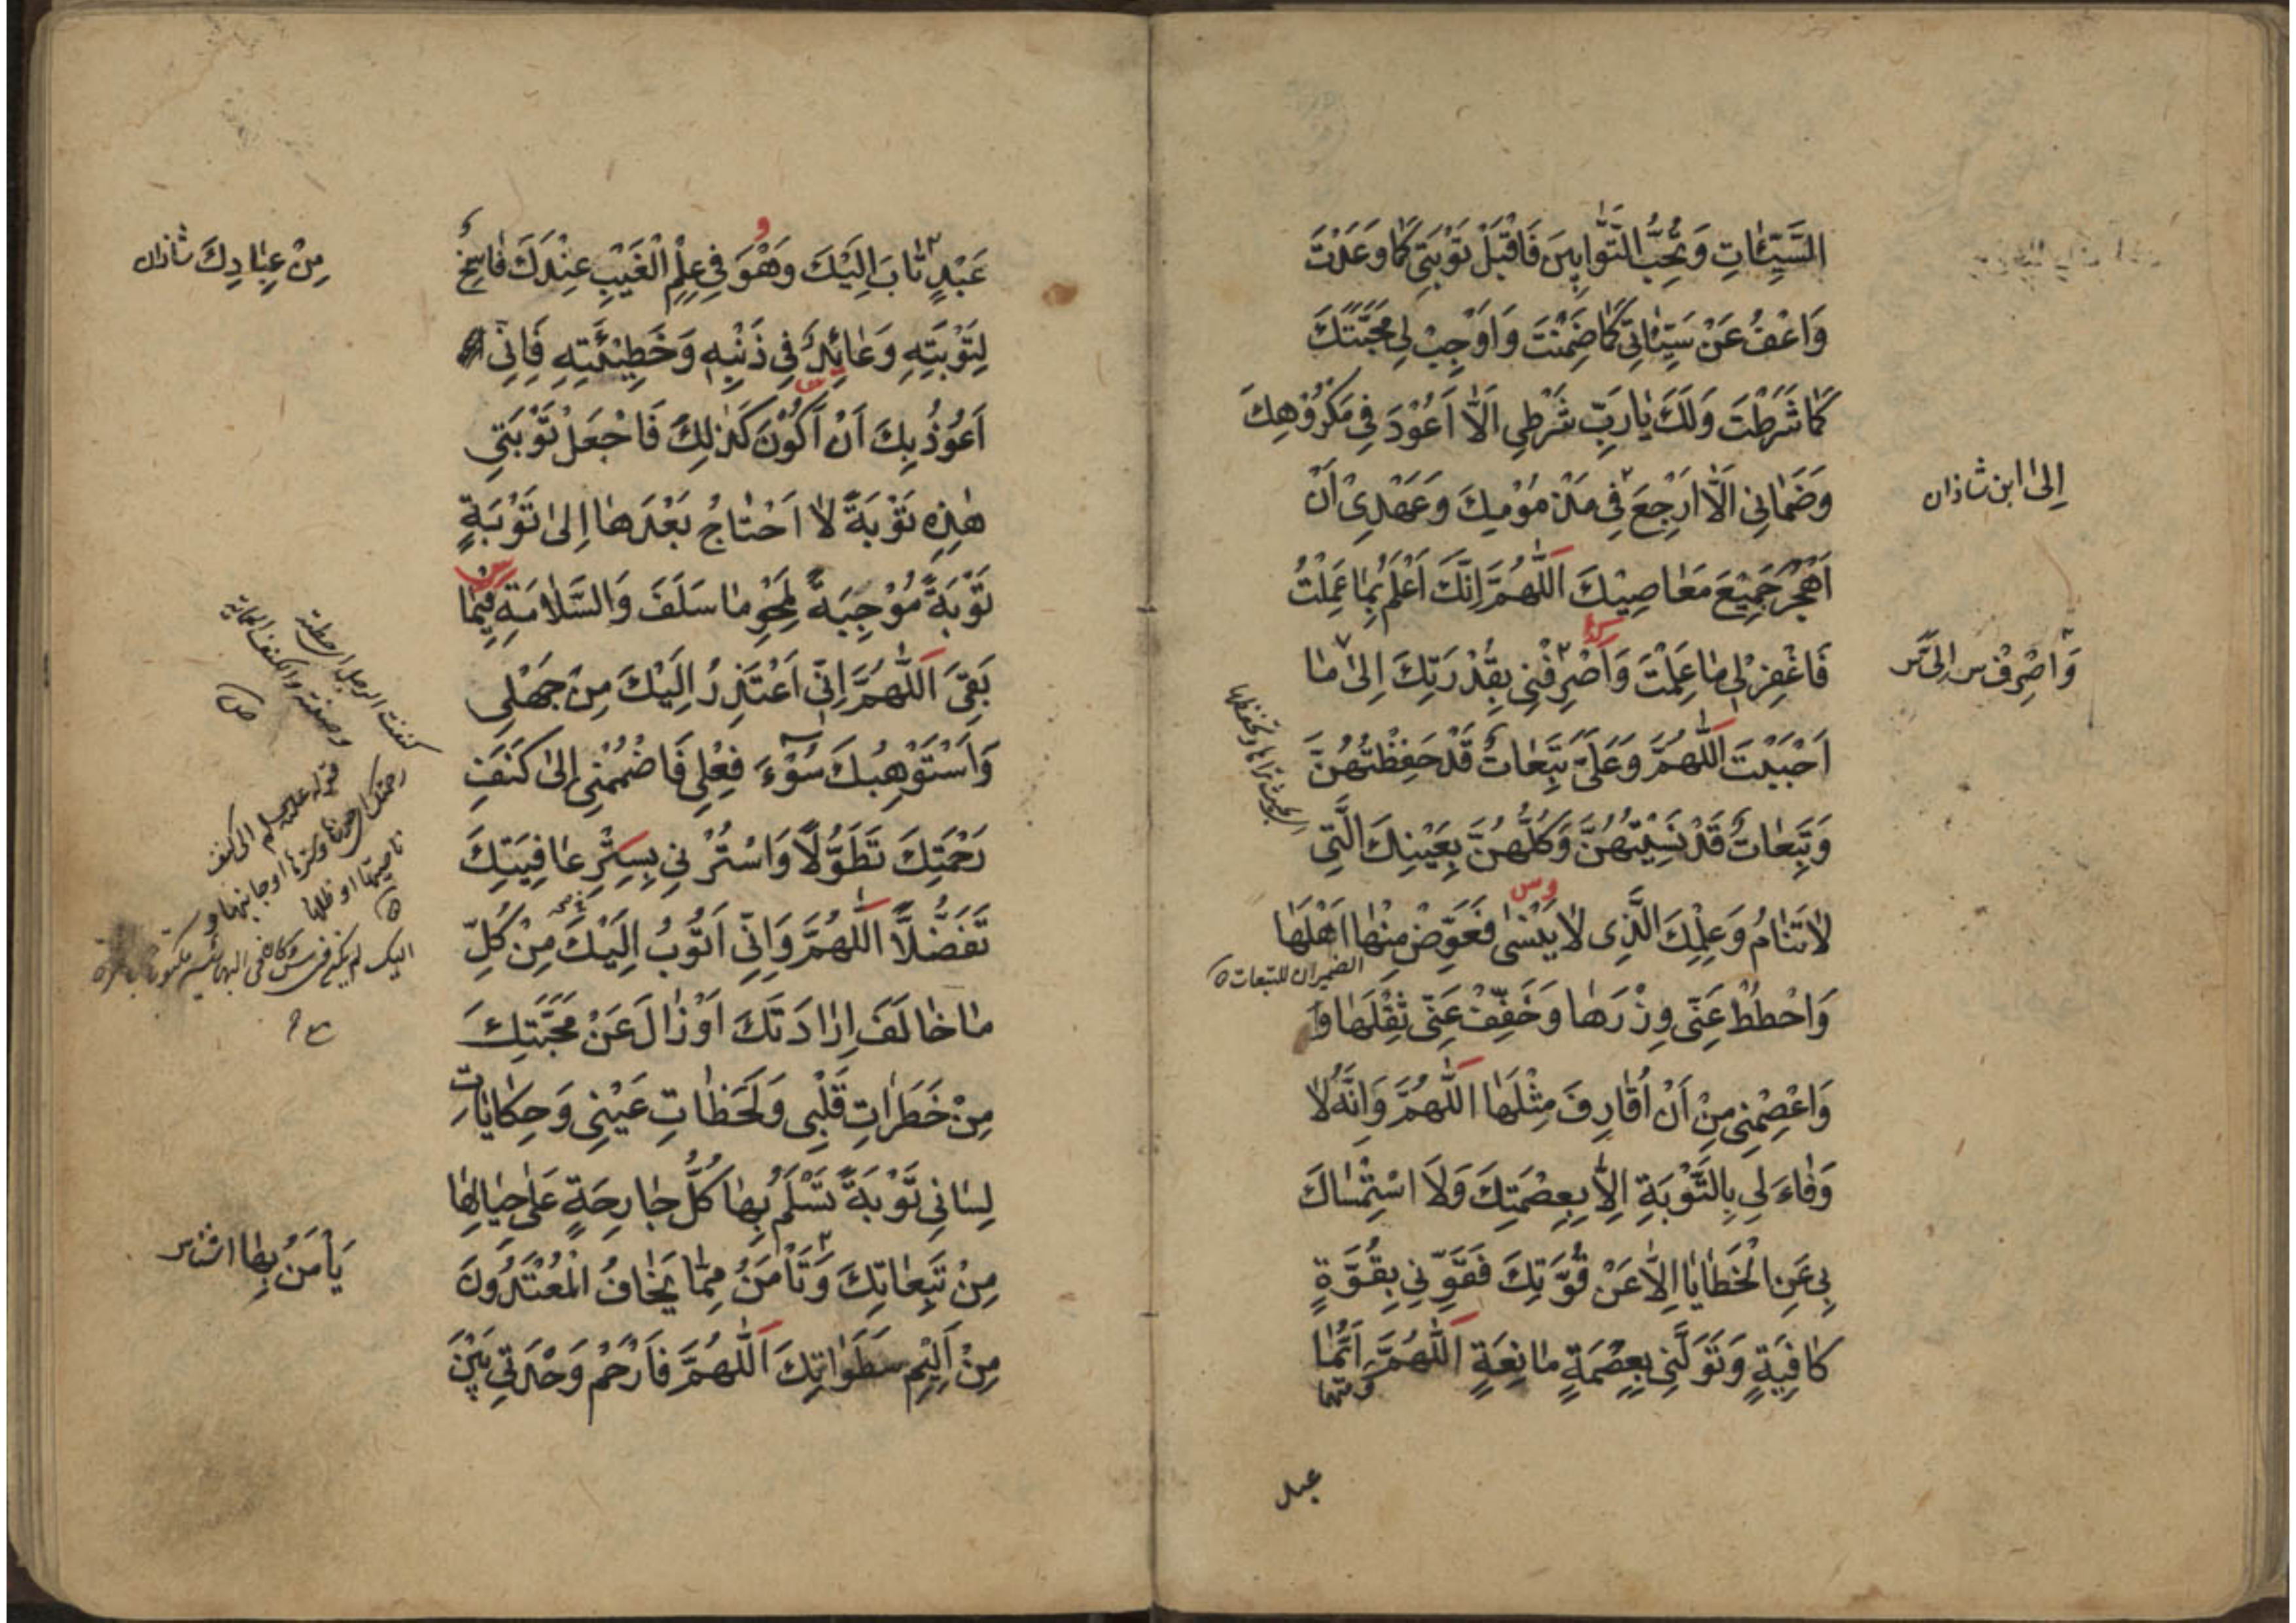 السَّيِّئَاتِ وَتُحِبُّ التَّوَّابِينَ فَاقْبَلْ تَوْبَتِي كَمَا وَعَدْتَ
وَاعْفُ عَنْ سَيِّئَاتِي كَمَا ضَمِنْتَ وَاَوْجِبْ لِي مَحَبَّتَكَ
كَمَا شَرَطْتَ وَلَكَ يَا رَبِّ شَرْطِي اَلَّا اَعُوْدَ فِي مَكْرُوْهِكَ
وَضَمَانِي اَلَّا اَرْجِعَ فِي مَذْمُوْمِكَ وَعَهْدِيْ اَنْ
اِلَى ابن شاذان
اَهْجُرَ جَمِيْعَ مَعَاصِيْكَ اَللّٰهُمَّ اِنَّكَ اَعْلَمُ بِمَا عَمِلْتُ
فَاغْفِرْ لِي مَا عَلِمْتَ وَاصْرِفْنِي بِقُدْرَتِكَ اِلَى مَا
وَاصْرِفْ س اِلَىَّ س
اَحْبَبْتَ اَللّٰهُمَّ وَعَلَيَّ تَبِعَاتٌ قَدْ حَفِظْتُهُنَّ
وَتَبِعَاتٌ قَدْ نَسِيْتُهُنَّ وَكُلُّهُنَّ بِعَيْنِكَ الَّتِي
لَا تَنَامُ وَعِلْمِكَ الَّذِي لَا يَنْسٰى فَعَوِّضْ مِنْهَا اَهْلَهَا
الضميران للتبعات
وَاحْطُطْ عَنِّي وِزْرَهَا وَخَفِّفْ عَنِّي ثِقْلَهَا وَ
وَاعْصِمْنِي مِنْ اَنْ اُقَارِفَ مِثْلَهَا اَللّٰهُمَّ وَاِنَّهُ لَا
وَفَاءَ لِي بِالتَّوْبَةِ اِلَّا بِعِصْمَتِكَ وَلَا اسْتِمْسَاكَ
بِي عَنِ الْخَطَايَا اِلَّا عَنْ قُوَّتِكَ فَقَوِّنِي بِقُوَّةٍ
كَافِيَةٍ وَتَوَلَّنِي بِعِصْمَةٍ مَانِعَةٍ اَللّٰهُمَّ اَيُّمَا
عبد
عَبْدٍ تَابَ اِلَيْكَ وَهُوَ فِي عِلْمِ الْغَيْبِ عِنْدَكَ فَاسِخٌ
مِنْ عِبَادِكَ شاذان
لِتَوْبَتِهِ وَعَائِدٌ فِي ذَنْبِهِ وَخَطِيْئَتِهِ فَاِنِّي
اَعُوْذُ بِكَ اَنْ اَكُوْنَ كَذٰلِكَ فَاجْعَلْ تَوْبَتِي
هٰذِهِ تَوْبَةً لَا اَحْتَاجُ بَعْدَهَا اِلَى تَوْبَةٍ
تَوْبَةً مُوْجِبَةً لِمَحْوِ مَا سَلَفَ وَالسَّلَامَةِ فِيْمَا
بَقِيَ اَللّٰهُمَّ اِنِّي اَعْتَذِرُ اِلَيْكَ مِنْ جَهْلِي
وَاَسْتَوْهِبُكَ سُوْءَ فِعْلِي فَاضْمُمْنِي اِلَى كَنَفِ
رَحْمَتِكَ تَطَوُّلًا وَاسْتُرْنِي بِسِتْرِ عَافِيَتِكَ
تَفَضُّلًا اَللّٰهُمَّ وَاِنِّي اَتُوْبُ اِلَيْكَ مِنْ كُلِّ
مَا خَالَفَ اِرَادَتَكَ اَوْ زَالَ عَنْ مَحَبَّتِكَ
مِنْ خَطَرَاتِ قَلْبِي وَلَحَظَاتِ عَيْنِي وَحِكَايَاتِ
لِسَانِي تَوْبَةً تَسْلَمُ بِهَا كُلُّ جَارِحَةٍ عَلَى حِيَالِهَا
مِنْ تَبِعَاتِكَ وَتَأْمَنُ مِمَّا يَخَافُ الْمُعْتَدُوْنَ
يَأْمَنُ بِهَا
مِنْ اَلِيْمِ سَطَوَاتِكَ اَللّٰهُمَّ فَارْحَمْ وَحْدَتِي بَيْنَ